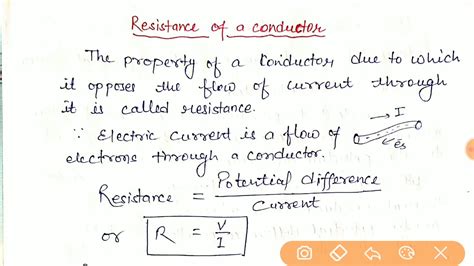 Resistance of a conductor
The property of a Conductor due to which
it opposes the flow of current through
it is called resistance.
∵ Electric current is a flow of
electrons through a conductor.
→ I
← e̅s
Resistance = Potential difference / Current
or R = V / I